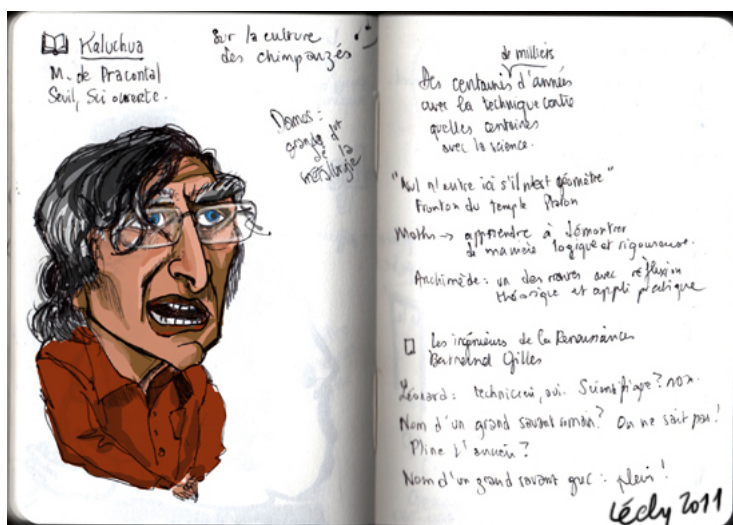 Kaluchua
M. de Pracontal
Seuil, Sci ouverte.
Sur la culture
des chimpanzés
Damas :
grands de la
métallurgie
de milliers
Des centaines d'années
avec la technique contre
quelques centaines
avec la science.
"Nul n'entre ici s'il n'est géomètre"
Fronton du temple Platon
Maths → apprendre à démontrer
de manière logique et rigoureuse.
Archimède : un des rares avec réflexion
théorique et appli pratique
Les ingénieurs de la Renaissance
Bertrand Gilles
Léonard : technicien, oui. Scientifique ? non.
Nom d'un grand savant romain ? On ne sait pas !
Pline l'ancien ?
Nom d'un grand savant grec : plein !
Lécly 2011